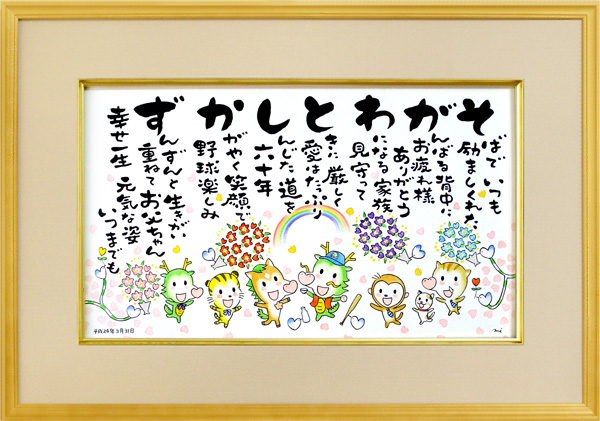 そがわとしかず
ばで いつも
励ましくれた
んばる背中に
お疲れ様
ありがとう
になる 家族
見守って
きに 厳しく
愛はたっぷり
んじた 道を
六十年
がやく 笑顔で
野球楽しみ
んずんと 生きがい
重ねて お父ちゃん
幸せ一生 元気な姿
いつまでも
平成24年3月31日